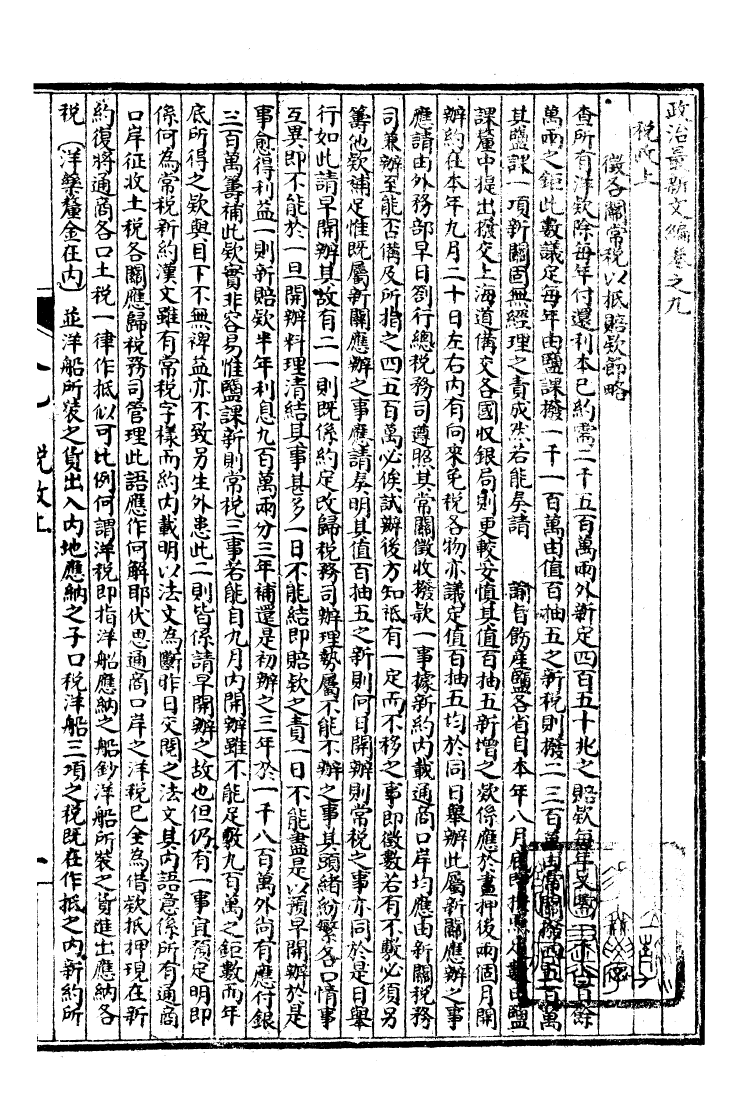 政治最新文編卷之九
稅政上
徵各關常稅以抵賠欵節略
查所有洋欵除每年付還利本已約需二千五百萬兩外新定四百五十兆之賠欵每年又需
萬兩之鉅此數議定每年由鹽課撥一千一百萬由值百抽五之新稅則撥二三百萬由常關撥四五百萬
其鹽課一項新關固無經理之責成然若能奏請 諭旨飭產鹽各省自本年八月底即按數由鹽
課釐中提出撥交上海道備交各國收銀局則更較妥慎其值百抽五新增之欵係應於畫押後兩個月開
辦約在本年九月二十日左右內有向來免稅各物亦議定值百抽五均於同日舉辦此屬新關應辦之事
應請由外務部早日劄行總稅務司遵照其常關徵收撥欵一事據新約內載通商口岸均應由新關稅務
司兼辦至能否備及所指之四五百萬必俟試辦後方知祇有一定而不移之事即徵數若有不敷必須另
籌他欵補足惟既屬新關應辦之事應請奏明其值百抽五之新則何日開辦則常稅之事亦同於是日舉
行如此請早開辦其故有二一則既係約定改歸稅務司辦理勢屬不能不辦之事其頭緒紛繁各口情事
互異即不能於一旦開辦料理清結其事甚多一日不能結即賠欵之責一日不能盡是以預早開辦於是
事愈得利益一則新賠欵半年利息九百萬兩分三年補還是初辦之三年於一千八百萬外尚有應付銀
三百萬籌補此欵實非容易惟鹽課新則常稅三事若能自九月內開辦雖不能足敷九百萬之鉅數而年
底所得之欵與目下不無裨益亦不致另生外患此二則皆係請早開辦之故也但仍有一事宜預定明即
係何為常稅新約漢文雖有常稅字樣而約內載明以法文為斷昨日交閱之法文其內語意係所有通商
口岸征收土稅各關應歸稅務司管理此語應作何解耶伏思通商口岸之洋稅已全為借欵抵押現在新
約復將通商各口土稅一律作抵似可比例何謂洋稅即指洋船應納之船鈔洋船所裝之貨進出應納各
稅（洋藥釐金在內）並洋船所裝之貨出入內地應納之子口稅洋船三項之稅既在作抵之內新約所
稅政上